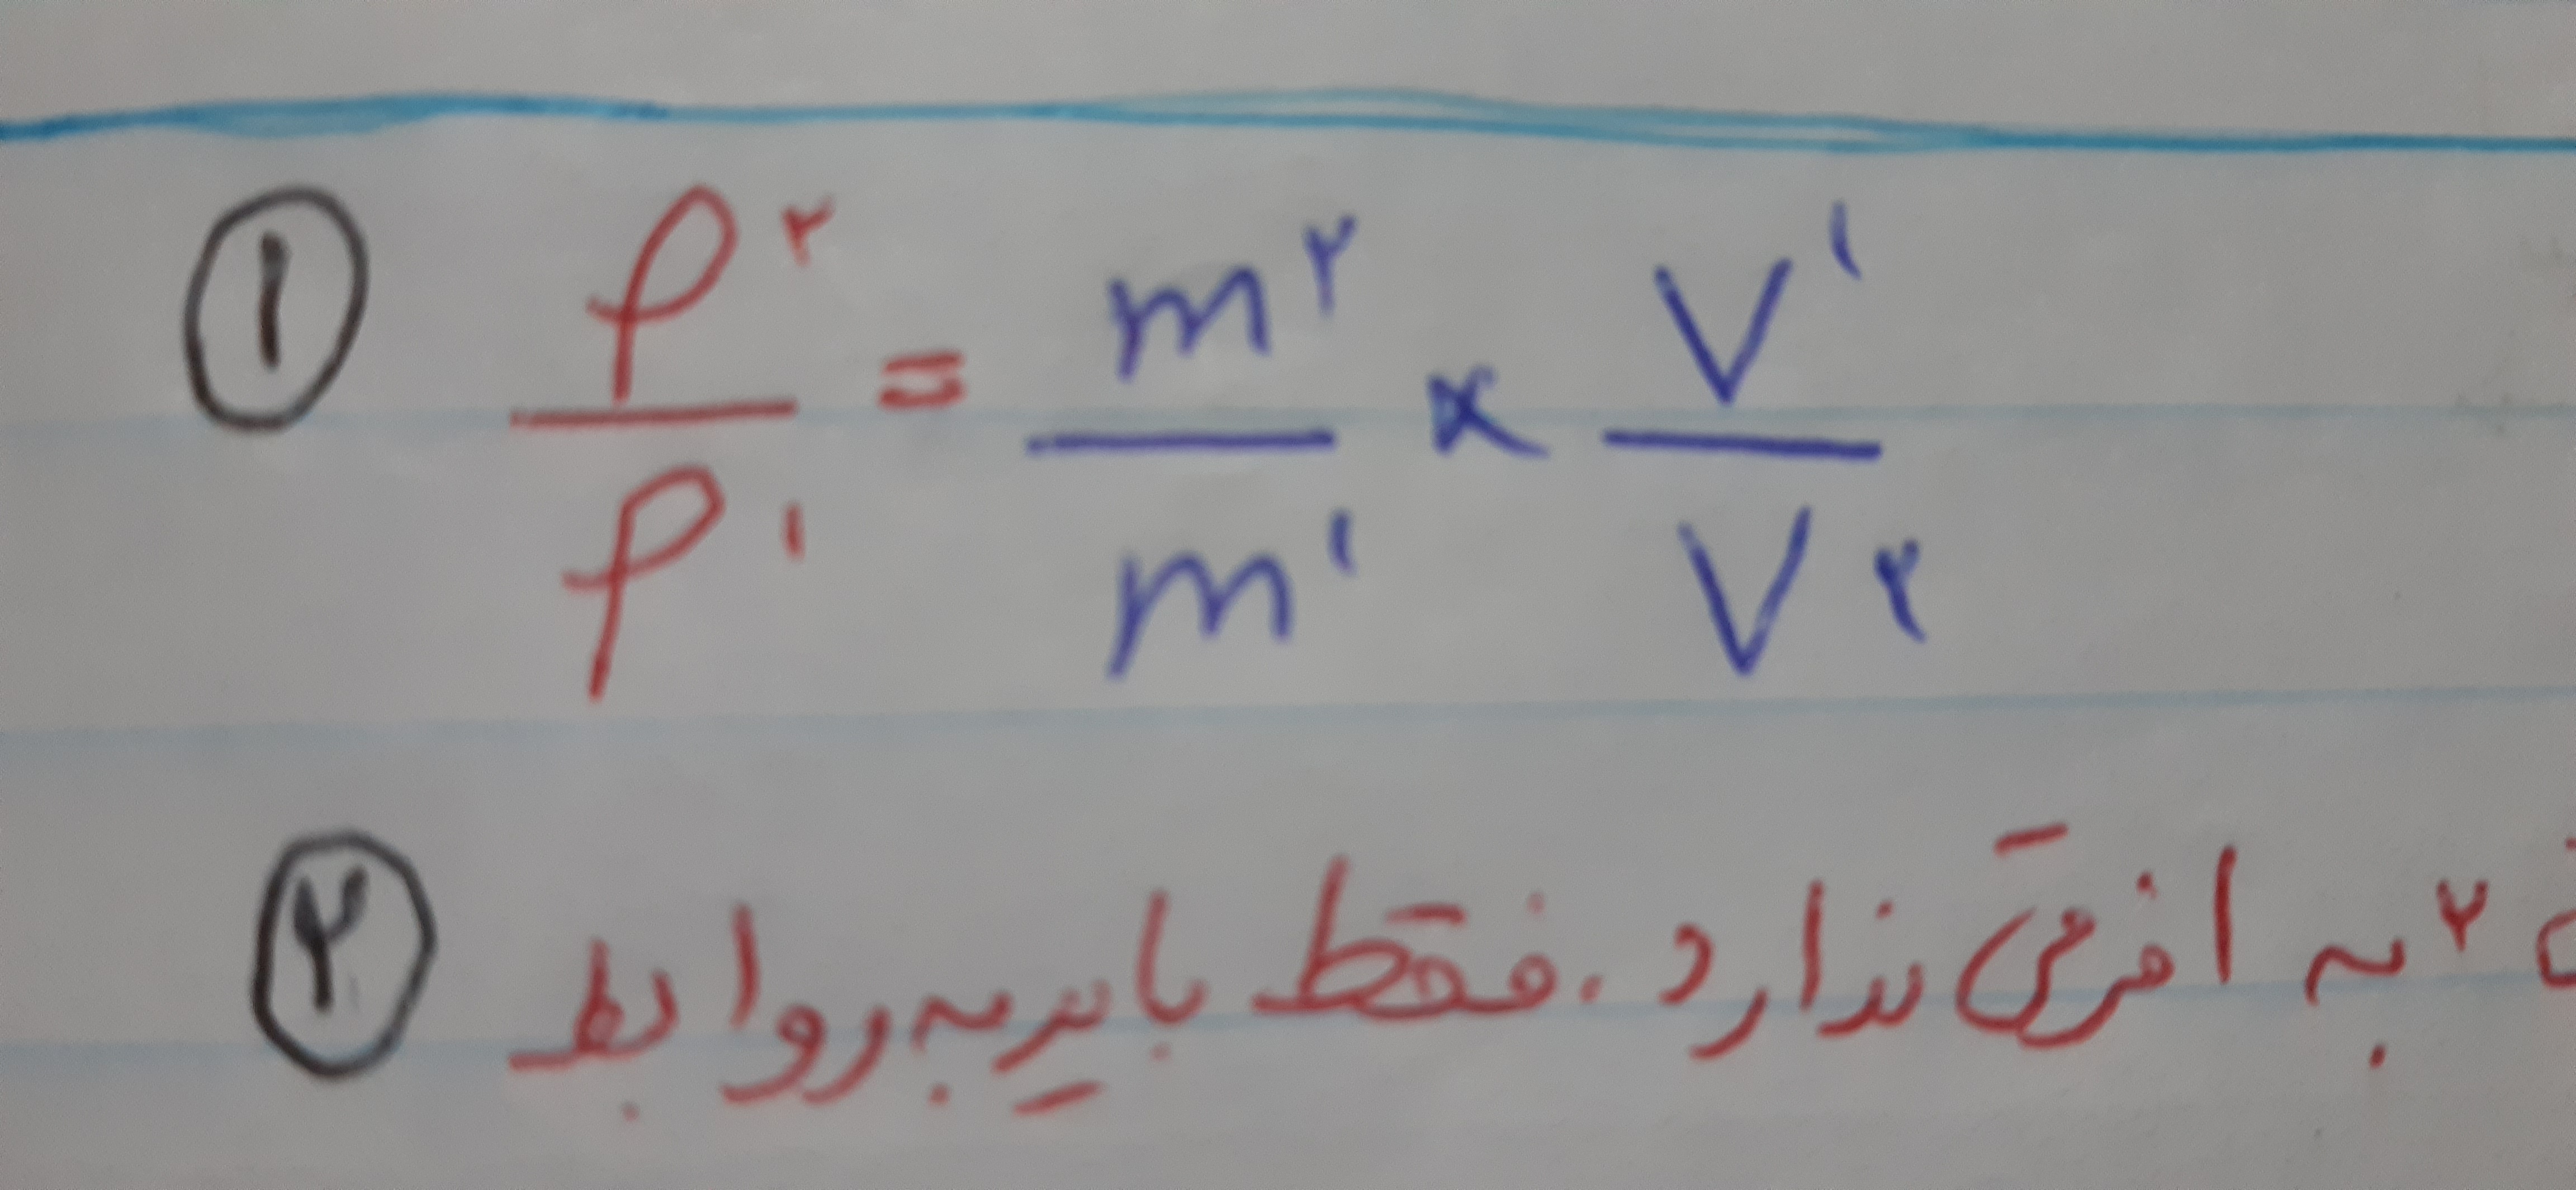 ① ρ۲ / ρ۱ = m۲ / m۱ × V۱ / V۲
② ۲ به ۱ فرقی ندارد، فقط باید به روابط